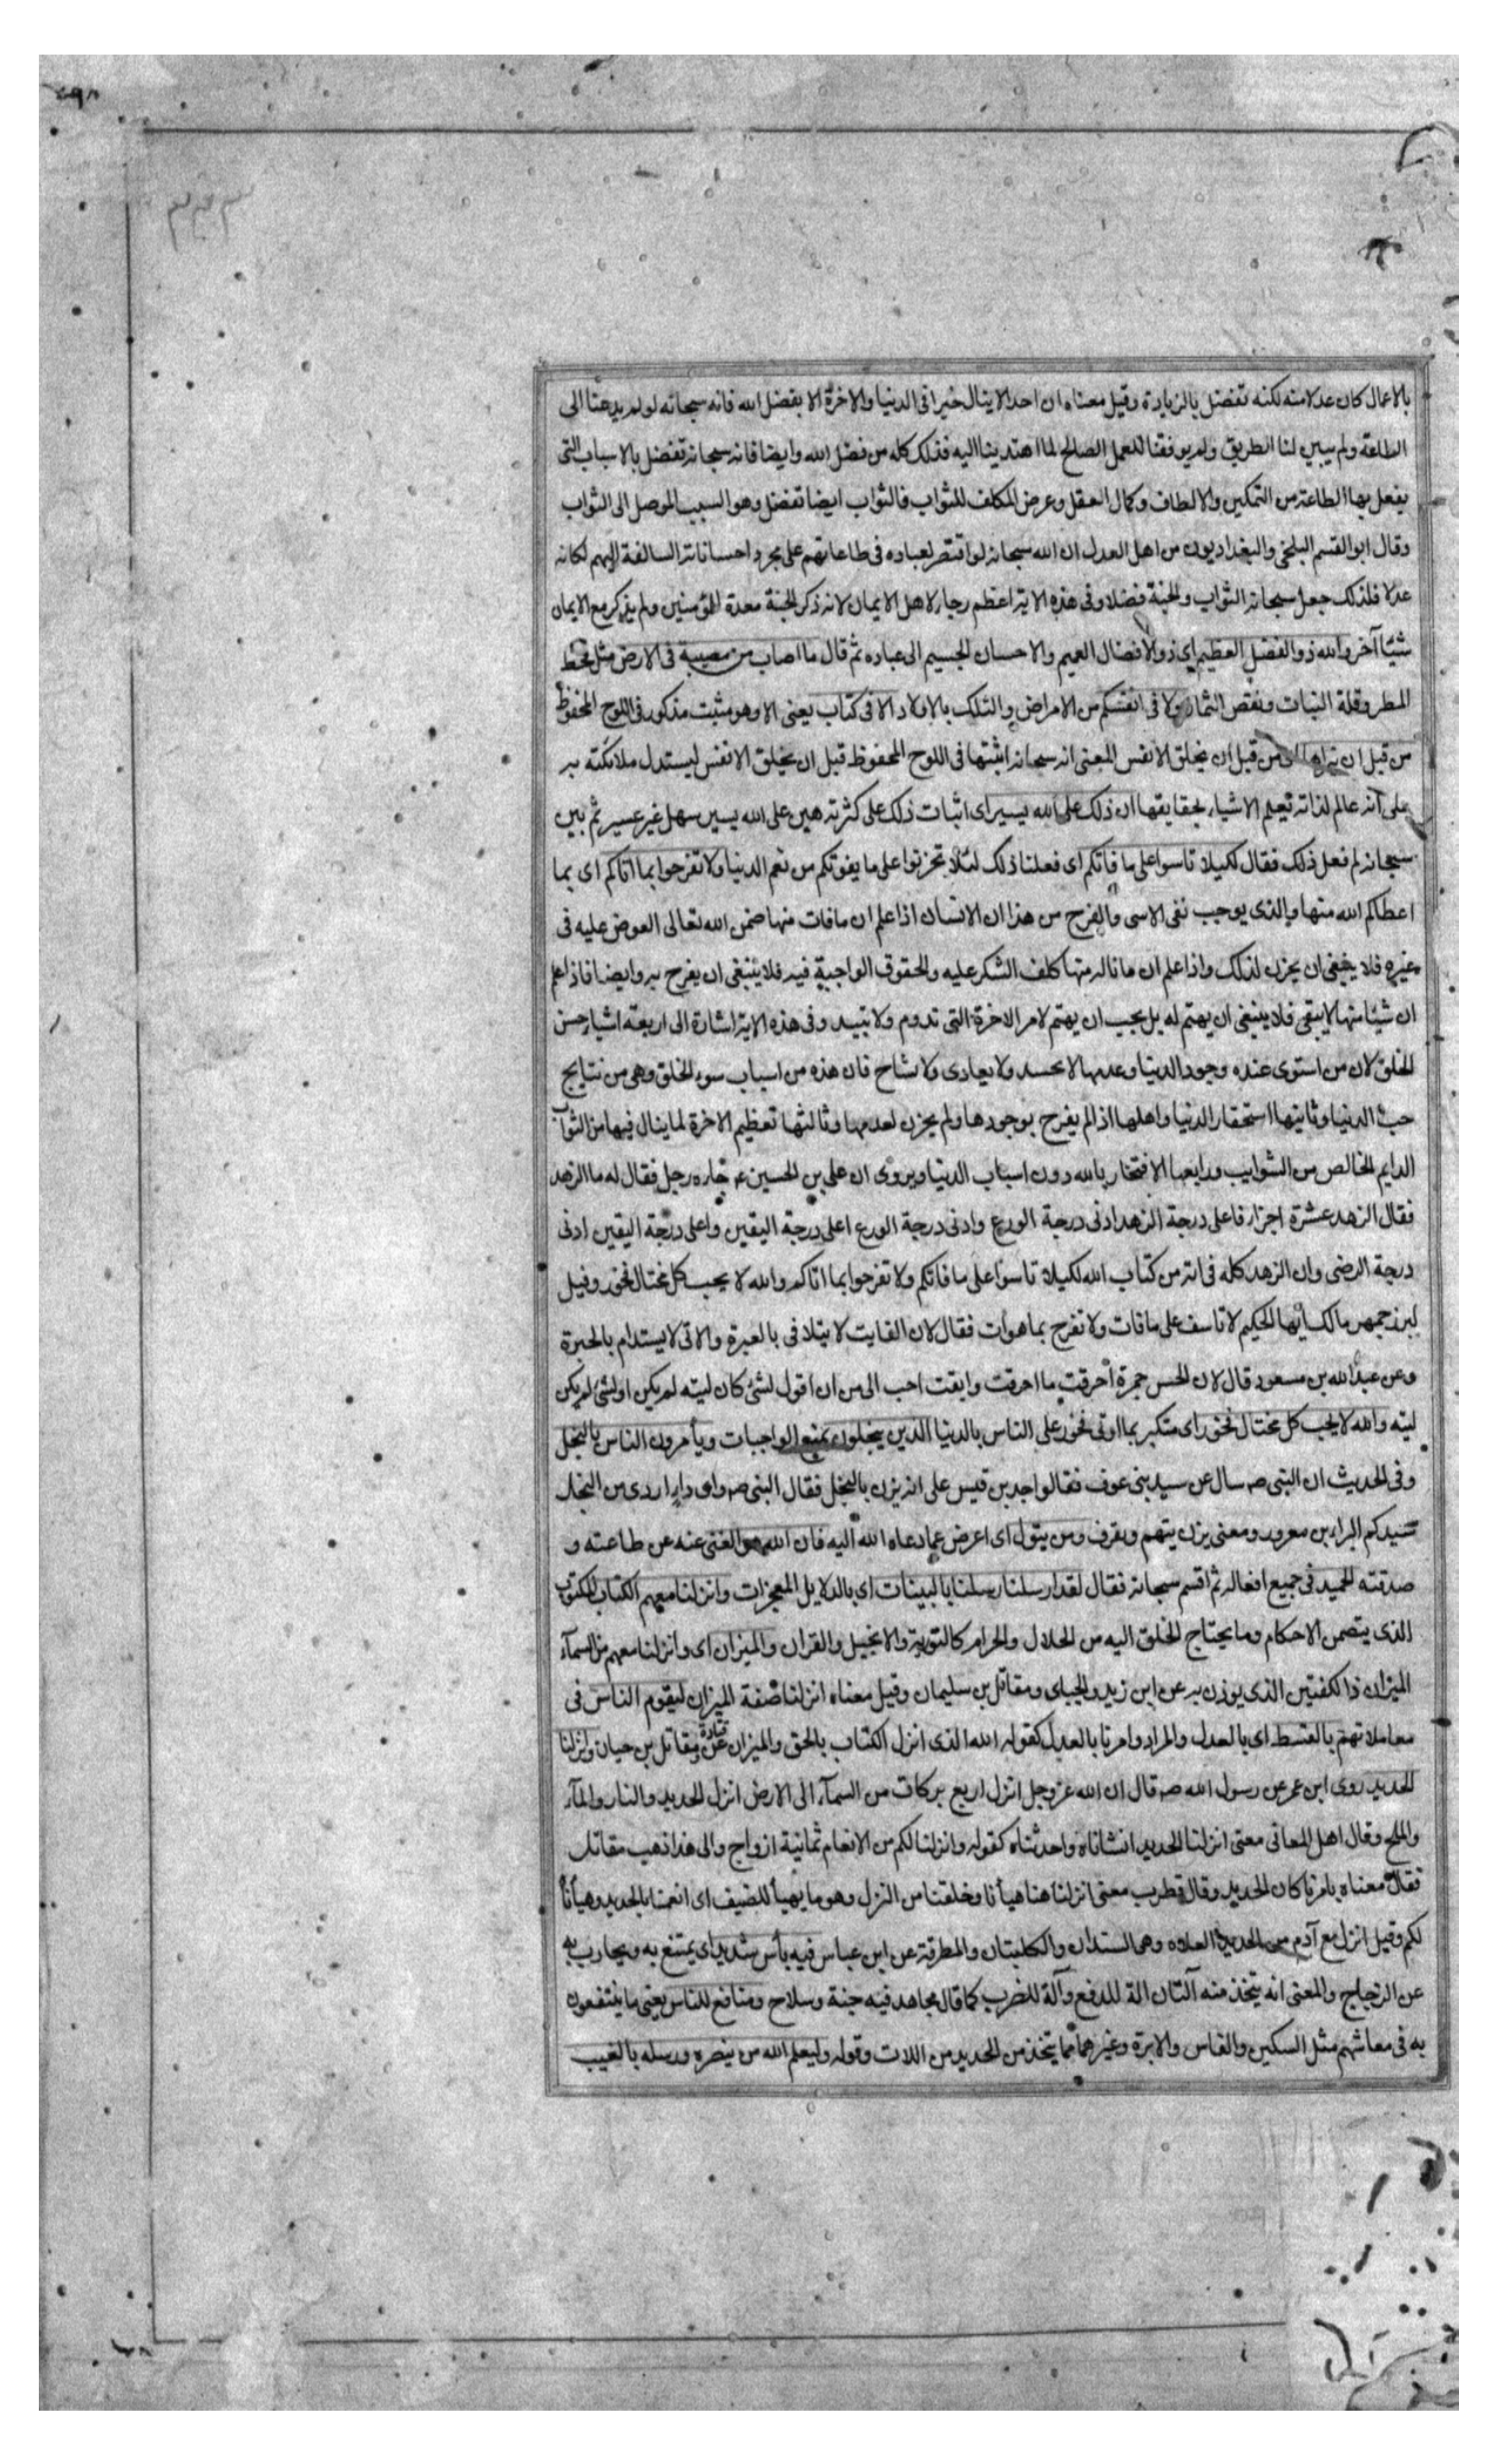 بالاعمال كان عدلا منه لكنه تفضل بالزيادة وقيل معناه ان احدا لا ينال خيرا فى الدنيا والاخرة الا بفضل الله فانه سبحانه لو لم يدعنا الى
الطاعة ولم يبين لنا الطريق ولم يوفقنا للعمل الصالح لما اهتدينا اليه فذلك كله من فضل الله وايضا فانه سبحانه تفضل بالاسباب التى
يفعل بها الطاعة من التمكين والالطاف وكمال العقل وعرض المكلف للثواب فالثواب ايضا تفضل وهو السبب الموصل الى الثواب
وقال ابو القسم البلخى والبغداديون من اهل العدل ان الله سبحانه لو اقتصر لعباده فى طاعاتهم على مجرد احساناته السالفة اليهم لكانه
عدلا فلذلك جعل سبحانه الثواب والجنة فضلا وفى هذه الاية اعظم رجاء لاهل الايمان لانه ذكر الجنة معدة للمؤمنين ولم يذكر مع الايمان
شيئا آخر والله ذو الفضل العظيم اى ذو الافضال العميم والاحسان الجسيم الى عباده ثم قال ما اصاب من مصيبة فى الارض مثل قحط
المطر وقلة النبات ونقص الثمار ولا فى انفسكم من الامراض والثكل بالاولاد الا فى كتاب يعنى الا وهو مثبت مذكور فى اللوح المحفوظ
من قبل ان نبراها اى من قبل ان يخلق الانفس المعنى انه سبحانه اثبتها فى اللوح المحفوظ قبل ان يخلق الانفس ليستدل ملائكته به
على انه عالم لذاته يعلم الاشياء بحقايقها ان ذلك على الله يسير اى اثبات ذلك على كثرته هين على الله يسير سهل غير عسير ثم بين
سبحانه لم فعل ذلك فقال لكيلا تاسوا على ما فاتكم اى فعلنا ذلك لئلا تحزنوا على ما يفوتكم من نعم الدنيا ولا تفرحوا بما اتاكم اى بما
اعطاكم الله منها والذى يوجب نفى الاسى والفرح من هذا ان الانسان اذا علم ان ما فات منها ضمن الله تعالى العوض عليه فى
غيره فلا ينبغى ان يحزن لذلك واذا علم ان ما ناله منها كلف الشكر عليه والحقوق الواجبة فيه فلا ينبغى ان يفرح به وايضا فاذا علم
ان شيئا منها لا يبقى فلا ينبغى ان يهتم له بل يجب ان يهتم لامر الاخرة التى تدوم ولا تبيد وفى هذه الاية اشارة الى اربعة اشياء حسن
الخلق لان من استوى عنده وجود الدنيا وعدمها لا يحسد ولا يعادى ولا يشاح فان هذه من اسباب سوء الخلق وهى من نتايج
حب الدنيا وثانيها استحقار الدنيا واهلها اذ لم يفرح بوجودها ولم يحزن لعدمها وثالثها تعظيم الاخرة لما ينال فيها من الثواب
الدايم الخالص من الشوايب ورابعها الافتخار بالله دون اسباب الدنيا ويروى ان على بن الحسين ع جاءه رجل فقال له ما الزهد
فقال الزهد عشرة اجزاء فاعلى درجة الزهد ادنى درجة الورع وادنى درجة الورع اعلى درجة اليقين واعلى درجة اليقين ادنى
درجة الرضى وان الزهد كله فى اية من كتاب الله لكيلا تاسوا على ما فاتكم ولا تفرحوا بما اتاكم والله لا يحب كل مختال فخور وقيل
لبزرجمهر مالك ايها الحكيم لا تاسف على ما فات ولا تفرح بما هو آت فقال لان الفايت لا يتلافى بالعبرة والاتى لا يستدام بالحبرة
وعن عبد الله بن مسعود قال لان الحس جمرة احرقت ما احرقت وابقت احب الى من ان اقول لشئ كان ليته لم يكن او لشئ لم يكن
ليته والله لا يحب كل مختال فخور اى متكبر بما اوتى فخور على الناس بالدنيا الذين يبخلون بمنع الواجبات ويأمرون الناس بالبخل
وفى الحديث ان النبى ص سال عن سيد بنى عوف فقالوا جد بن قيس على انه يزن بالبخل فقال النبى ص واى داء اردى من البخل
سيدكم البراء بن معرور ومعنى يزن يتهم ويقرف ومن يتول اى اعرض عما دعاه الله اليه فان الله هو الغنى عنه عن طاعته و
صدقته الحميد فى جميع افعاله ثم اقسم سبحانه فقال لقد ارسلنا رسلنا بالبينات اى بالدلايل المعجزات وانزلنا معهم الكتاب المكتوب
الذى يتضمن الاحكام وما يحتاج الخلق اليه من الحلال والحرام كالتورية والانجيل والقران والميزان اى وانزلنا معهم من السمآء
الميزان ذا الكفتين الذى يوزن به عن ابن زيد والجبائى ومقاتل بن سليمان وقيل معناه انزلنا صفة الميزان ليقوم الناس فى
معاملاتهم بالقسط اى بالعدل والمراد وامرنا بالعدل كقوله الله الذى انزل الكتاب بالحق والميزان عن قتادة ومقاتل بن حيان وانزلنا
الحديد روى ابن عمر عن رسول الله ص قال ان الله عز وجل انزل اربع بركات من السمآء الى الارض انزل الحديد والنار والمآء
والملح وقال اهل المعانى معنى انزلنا الحديد انشاناه واحدثناه كقوله وانزلنا لكم من الانعام ثمانية ازواج والى هذا ذهب مقاتل
فقال معناه بامرنا كان الحديد وقال قطرب معنى انزلنا هنا هيأنا وخلقنا من النزل وهو ما يهيأ للضيف اى انعمنا بالحديد وهيأناه
لكم وقيل انزل مع آدم من الحديد العلاة وهى السندان والكلبتان والمطرقة عن ابن عباس فيه بأس شديد اى يمتنع به ويحارب به
عن الزجاج والمعنى انه يتخذ منه آلتان الة للدفع وآلة للضرب كما قال مجاهد فيه جنة وسلاح ومنافع للناس يعنى ما ينتفعون
به فى معاشهم مثل السكين والفاس والابرة وغيرهما مما يتخذ من الحديد من اللات وقوله وليعلم الله من ينصره ورسله بالغيب